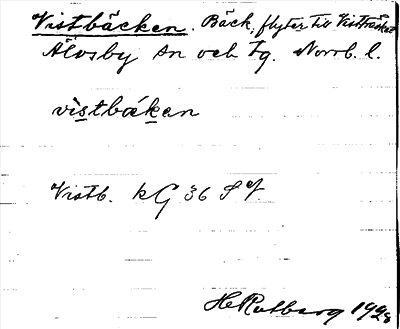 Vistbäcken. Bäck, flyter till Vistträsket
Älvsby sn och tg. Norrb. l.
vistbäkan
Vistb. kG 36 Sf.
H Rutberg 1928